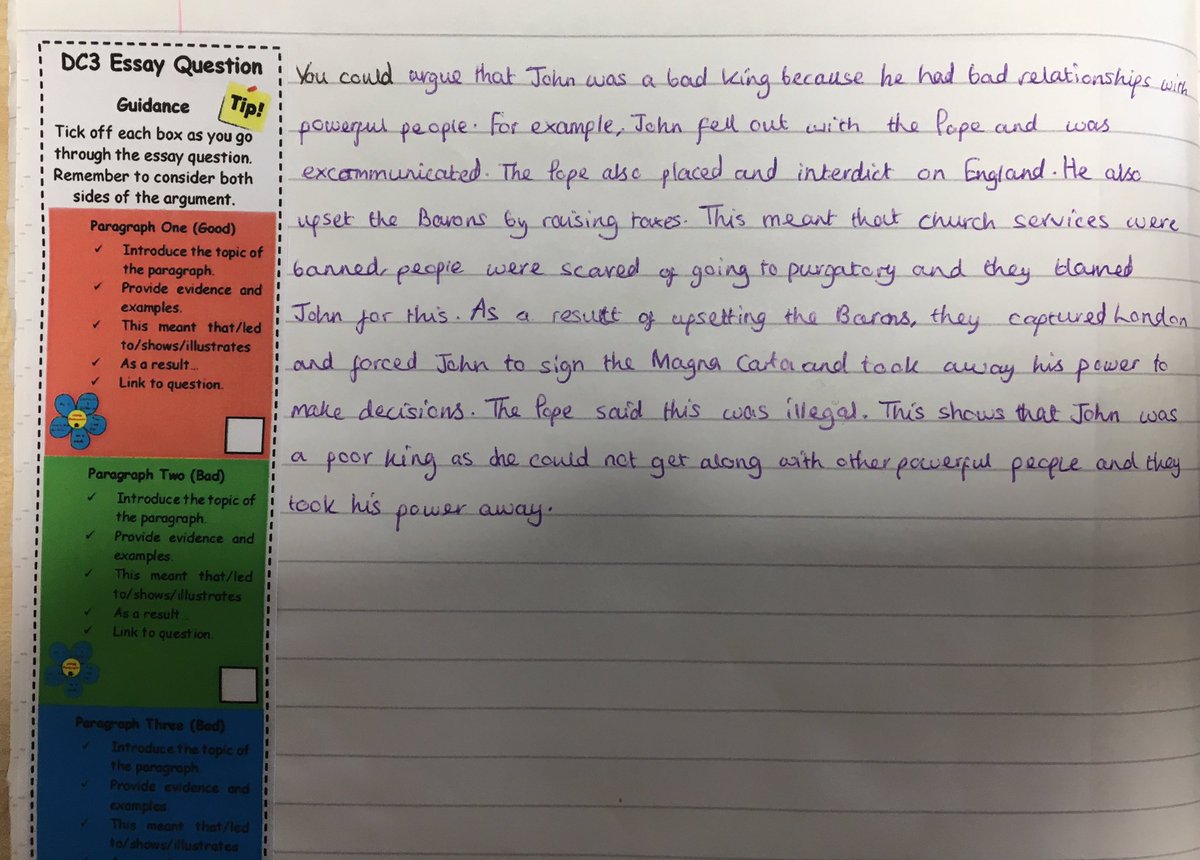 DC3 Essay Question
Guidance
Tip!
Tick off each box as you go
through the essay question.
Remember to consider both
sides of the argument.
Paragraph One (Good)
✓ Introduce the topic of
the paragraph.
✓ Provide evidence and
examples.
✓ This meant that/led
to/shows/illustrates
✓ As a result…
✓ Link to question.
Paragraph Two (Bad)
✓ Introduce the topic of
the paragraph.
✓ Provide evidence and
examples.
✓ This meant that/led
to/shows/illustrates
✓ As a result…
✓ Link to question.
Paragraph Three (Bad)
✓ Introduce the topic of
the paragraph.
✓ Provide evidence and
examples
✓ This meant that/led
to/shows/illustrates
You could argue that John was a bad king because he had bad relationships with
powerful people. For example, John fell out with the Pope and was
excommunicated. The Pope also placed and interdict on England. He also
upset the Barons by raising taxes. This meant that church services were
banned, people were scared of going to purgatory and they blamed
John for this. As a result of upsetting the Barons, they captured London
and forced John to sign the Magna Carta and took away his power to
make decisions. The Pope said this was illegal. This shows that John was
a poor king as he could not get along with other powerful people and they
took his power away.